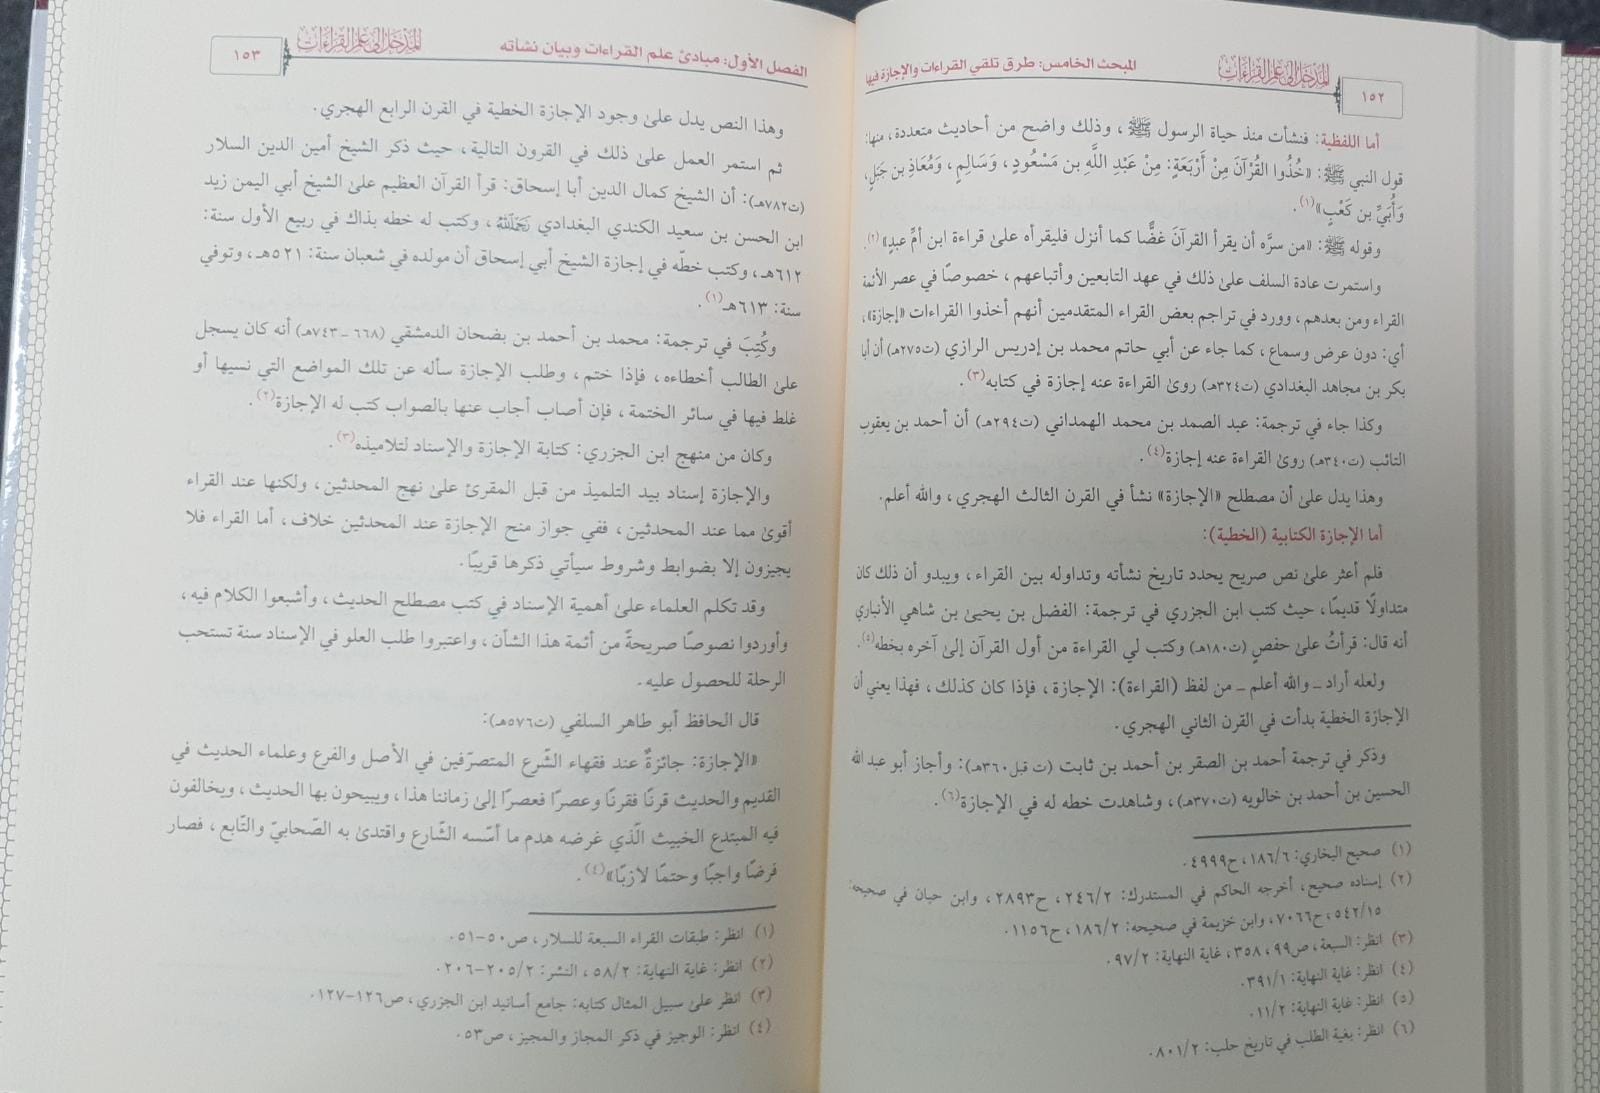 المدخل إلى علم القراءات
المبحث الخامس: طرق تلقي القراءات والإجازة فيها
١٥٢
أما اللفظية: فنشأت منذ حياة الرسول ﷺ، وذلك واضح من أحاديث متعددة، منها:
قول النبي ﷺ: «خُذُوا القُرْآنَ مِنْ أَرْبَعَةٍ: مِنْ عَبْدِ اللَّهِ بن مَسْعُودٍ، وَسَالِمٍ، وَمُعَاذِ بن جَبَلٍ،
وَأُبَيِّ بن كَعْبٍ»(١).
وقوله ﷺ: «من سرَّه أن يقرأ القرآنَ غضًّا كما أنزل فليقرأه علىٰ قراءة ابن أمِّ عبدٍ»(٢).
واستمرت عادة السلف علىٰ ذلك في عهد التابعين وأتباعهم، خصوصًا في عصر الأئمة
القراء ومن بعدهم، وورد في تراجم بعض القراء المتقدمين أنهم أخذوا القراءات «إجازة»،
أي: دون عرض وسماع، كما جاء عن أبي حاتم محمد بن إدريس الرازي (ت٢٧٥هـ) أن أبا
بكر بن مجاهد البغدادي (ت٣٢٤هـ) روىٰ القراءة عنه إجازة في كتابه(٣).
وكذا جاء في ترجمة: عبد الصمد بن محمد الهمداني (ت٢٩٤هـ) أن أحمد بن يعقوب
التائب (ت٣٤٠هـ) روىٰ القراءة عنه إجازة(٤).
وهذا يدل علىٰ أن مصطلح «الإجازة» نشأ في القرن الثالث الهجري، والله أعلم.
أما الإجازة الكتابية (الخطية):
فلم أعثر علىٰ نص صريح يحدد تاريخ نشأته وتداوله بين القراء، ويبدو أن ذلك كان
متداولًا قديمًا، حيث كتب ابن الجزري في ترجمة: الفضل بن يحيىٰ بن شاهي الأنباري
أنه قال: قرأتُ علىٰ حفصٍ (ت١٨٠هـ) وكتب لي القراءة من أول القرآن إلىٰ آخره بخطه(٥).
ولعله أراد ــ والله أعلم ــ من لفظ (القراءة): الإجازة، فإذا كان كذلك، فهذا يعني أن
الإجازة الخطية بدأت في القرن الثاني الهجري.
وذكر في ترجمة أحمد بن الصقر بن أحمد بن ثابت (ت قبل ٣٦٠هـ): وأجاز أبو عبد الله
الحسين بن أحمد بن خالويه (ت٣٧٠هـ)، وشاهدت خطه له في الإجازة(٦).
(١) صحيح البخاري: ١٨٦/٦، ح٤٩٩٩.
(٢) إسناده صحيح، أخرجه الحاكم في المستدرك: ٢٤٦/٢، ح٢٨٩٣، وابن حبان في صحيحه:
٥٤٢/١٥، ح٧٠٦٦، وابن خزيمة في صحيحه: ١٨٦/٢، ح١١٥٦.
(٣) انظر: السبعة، ص٩٩، ٣٥٨، غاية النهاية: ٩٧/٢.
(٤) انظر: غاية النهاية: ٣٩١/١.
(٥) انظر: غاية النهاية: ١١/٢.
(٦) انظر: بغية الطلب في تاريخ حلب: ٨٠١/٢.
الفصل الأول: مبادئ علم القراءات وبيان نشأته
المدخل إلى علم القراءات
١٥٣
وهذا النص يدل علىٰ وجود الإجازة الخطية في القرن الرابع الهجري.
ثم استمر العمل علىٰ ذلك في القرون التالية، حيث ذكر الشيخ أمين الدين السلار
(ت٧٨٢هـ): أن الشيخ كمال الدين أبا إسحاق: قرأ القرآن العظيم علىٰ الشيخ أبي اليمن زيد
ابن الحسن بن سعيد الكندي البغدادي رَحِمَهُ ٱللَّهُ، وكتب له خطه بذاك في ربيع الأول سنة:
٦١٢هـ، وكتب خطّه في إجازة الشيخ أبي إسحاق أن مولده في شعبان سنة: ٥٢١هـ، وتوفي
سنة: ٦١٣هـ(١).
وكُتِبَ في ترجمة: محمد بن أحمد بن بضحان الدمشقي (٦٦٨ــ٧٤٣هـ) أنه كان يسجل
علىٰ الطالب أخطاءه، فإذا ختم، وطلب الإجازة سأله عن تلك المواضع التي نسيها أو
غلط فيها في سائر الختمة، فإن أصاب أجاب عنها بالصواب كتب له الإجازة(٢).
وكان من منهج ابن الجزري: كتابة الإجازة والإسناد لتلاميذه(٣).
والإجازة إسناد بيد التلميذ من قبل المقرئ علىٰ نهج المحدثين، ولكنها عند القراء
أقوىٰ مما عند المحدثين، ففي جواز منح الإجازة عند المحدثين خلاف، أما القراء فلا
يجيزون إلا بضوابط وشروط سيأتي ذكرها قريبًا.
وقد تكلم العلماء علىٰ أهمية الإسناد في كتب مصطلح الحديث، وأشبعوا الكلام فيه،
وأوردوا نصوصًا صريحةً من أئمة هذا الشأن، واعتبروا طلب العلو في الإسناد سنة تستحب
الرحلة للحصول عليه.
قال الحافظ أبو طاهر السلفي (ت٥٧٦هـ):
«الإجازة: جائزةٌ عند فقهاء الشّرع المتصرّفين في الأصل والفرع وعلماء الحديث في
القديم والحديث قرنًا فقرنًا وعصرًا فعصرًا إلىٰ زماننا هذا، ويبيحون بها الحديث، ويخالفون
فيه المبتدع الخبيث الّذي غرضه هدم ما أسّسه الشّارع واقتدىٰ به الصّحابيّ والتّابع، فصار
فرضًا واجبًا وحتمًا لازبًا»(٤).
(١) انظر: طبقات القراء السبعة للسلار، ص٥٠-٥١.
(٢) انظر: غاية النهاية: ٥٨/٢، النشر: ٢٠٥/٢-٢٠٦.
(٣) انظر علىٰ سبيل المثال كتابه: جامع أسانيد ابن الجزري، ص١٢٦-١٢٧.
(٤) انظر: الوجيز في ذكر المجاز والمجيز، ص٥٣.